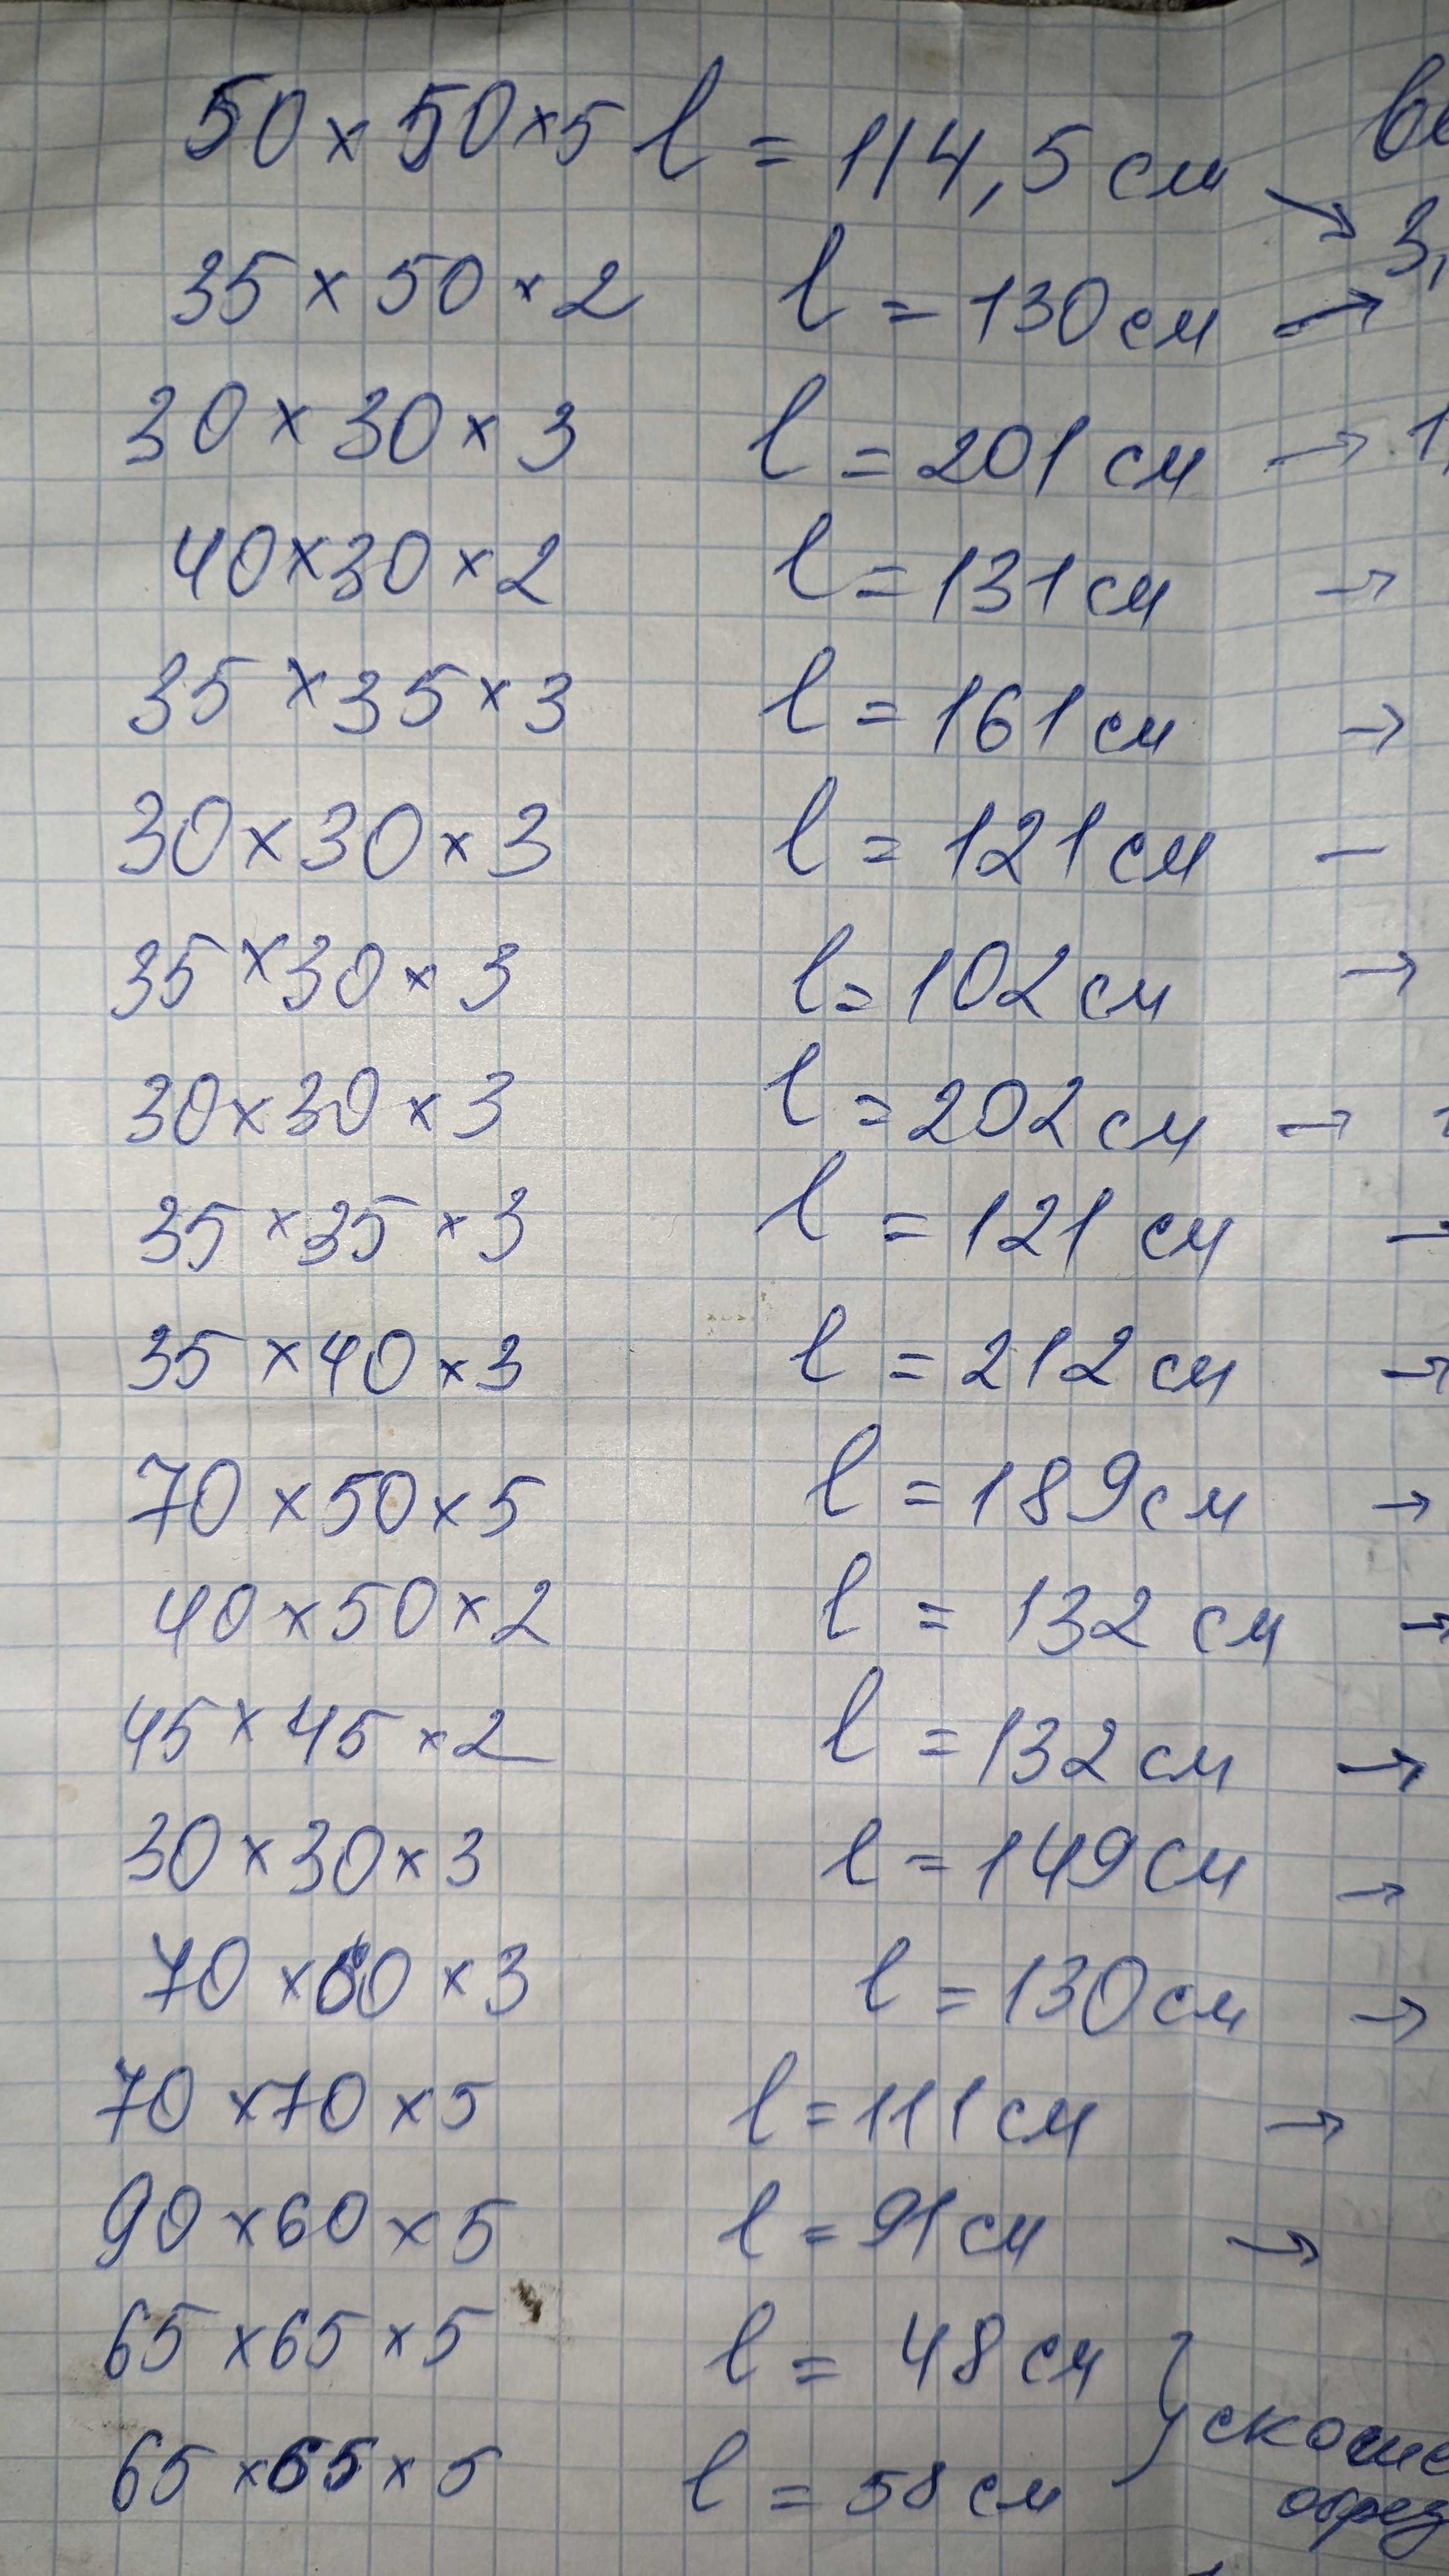 50×50×5 l = 114,5 см
→ 3,
35×50×2 l = 130 см →
30×30×3 l = 201 см → 1,
40×30×2 l = 131 см →
35×35×3 l = 161 см →
30×30×3 l = 121 см –
35×30×3 l = 102 см →
30×30×3 l = 202 см →
35×35×3 l = 121 см →
35×40×3 l = 212 см →
70×50×5 l = 189 см →
40×50×2 l = 132 см →
45×45×2 l = 132 см →
30×30×3 l = 149 см →
70× ×3 l = 130 см →
70×70×5 l = 111 см →
90×60×5 l = 91 см →
65×65×5 l = 48 см }
65×65×5 l = 58 см